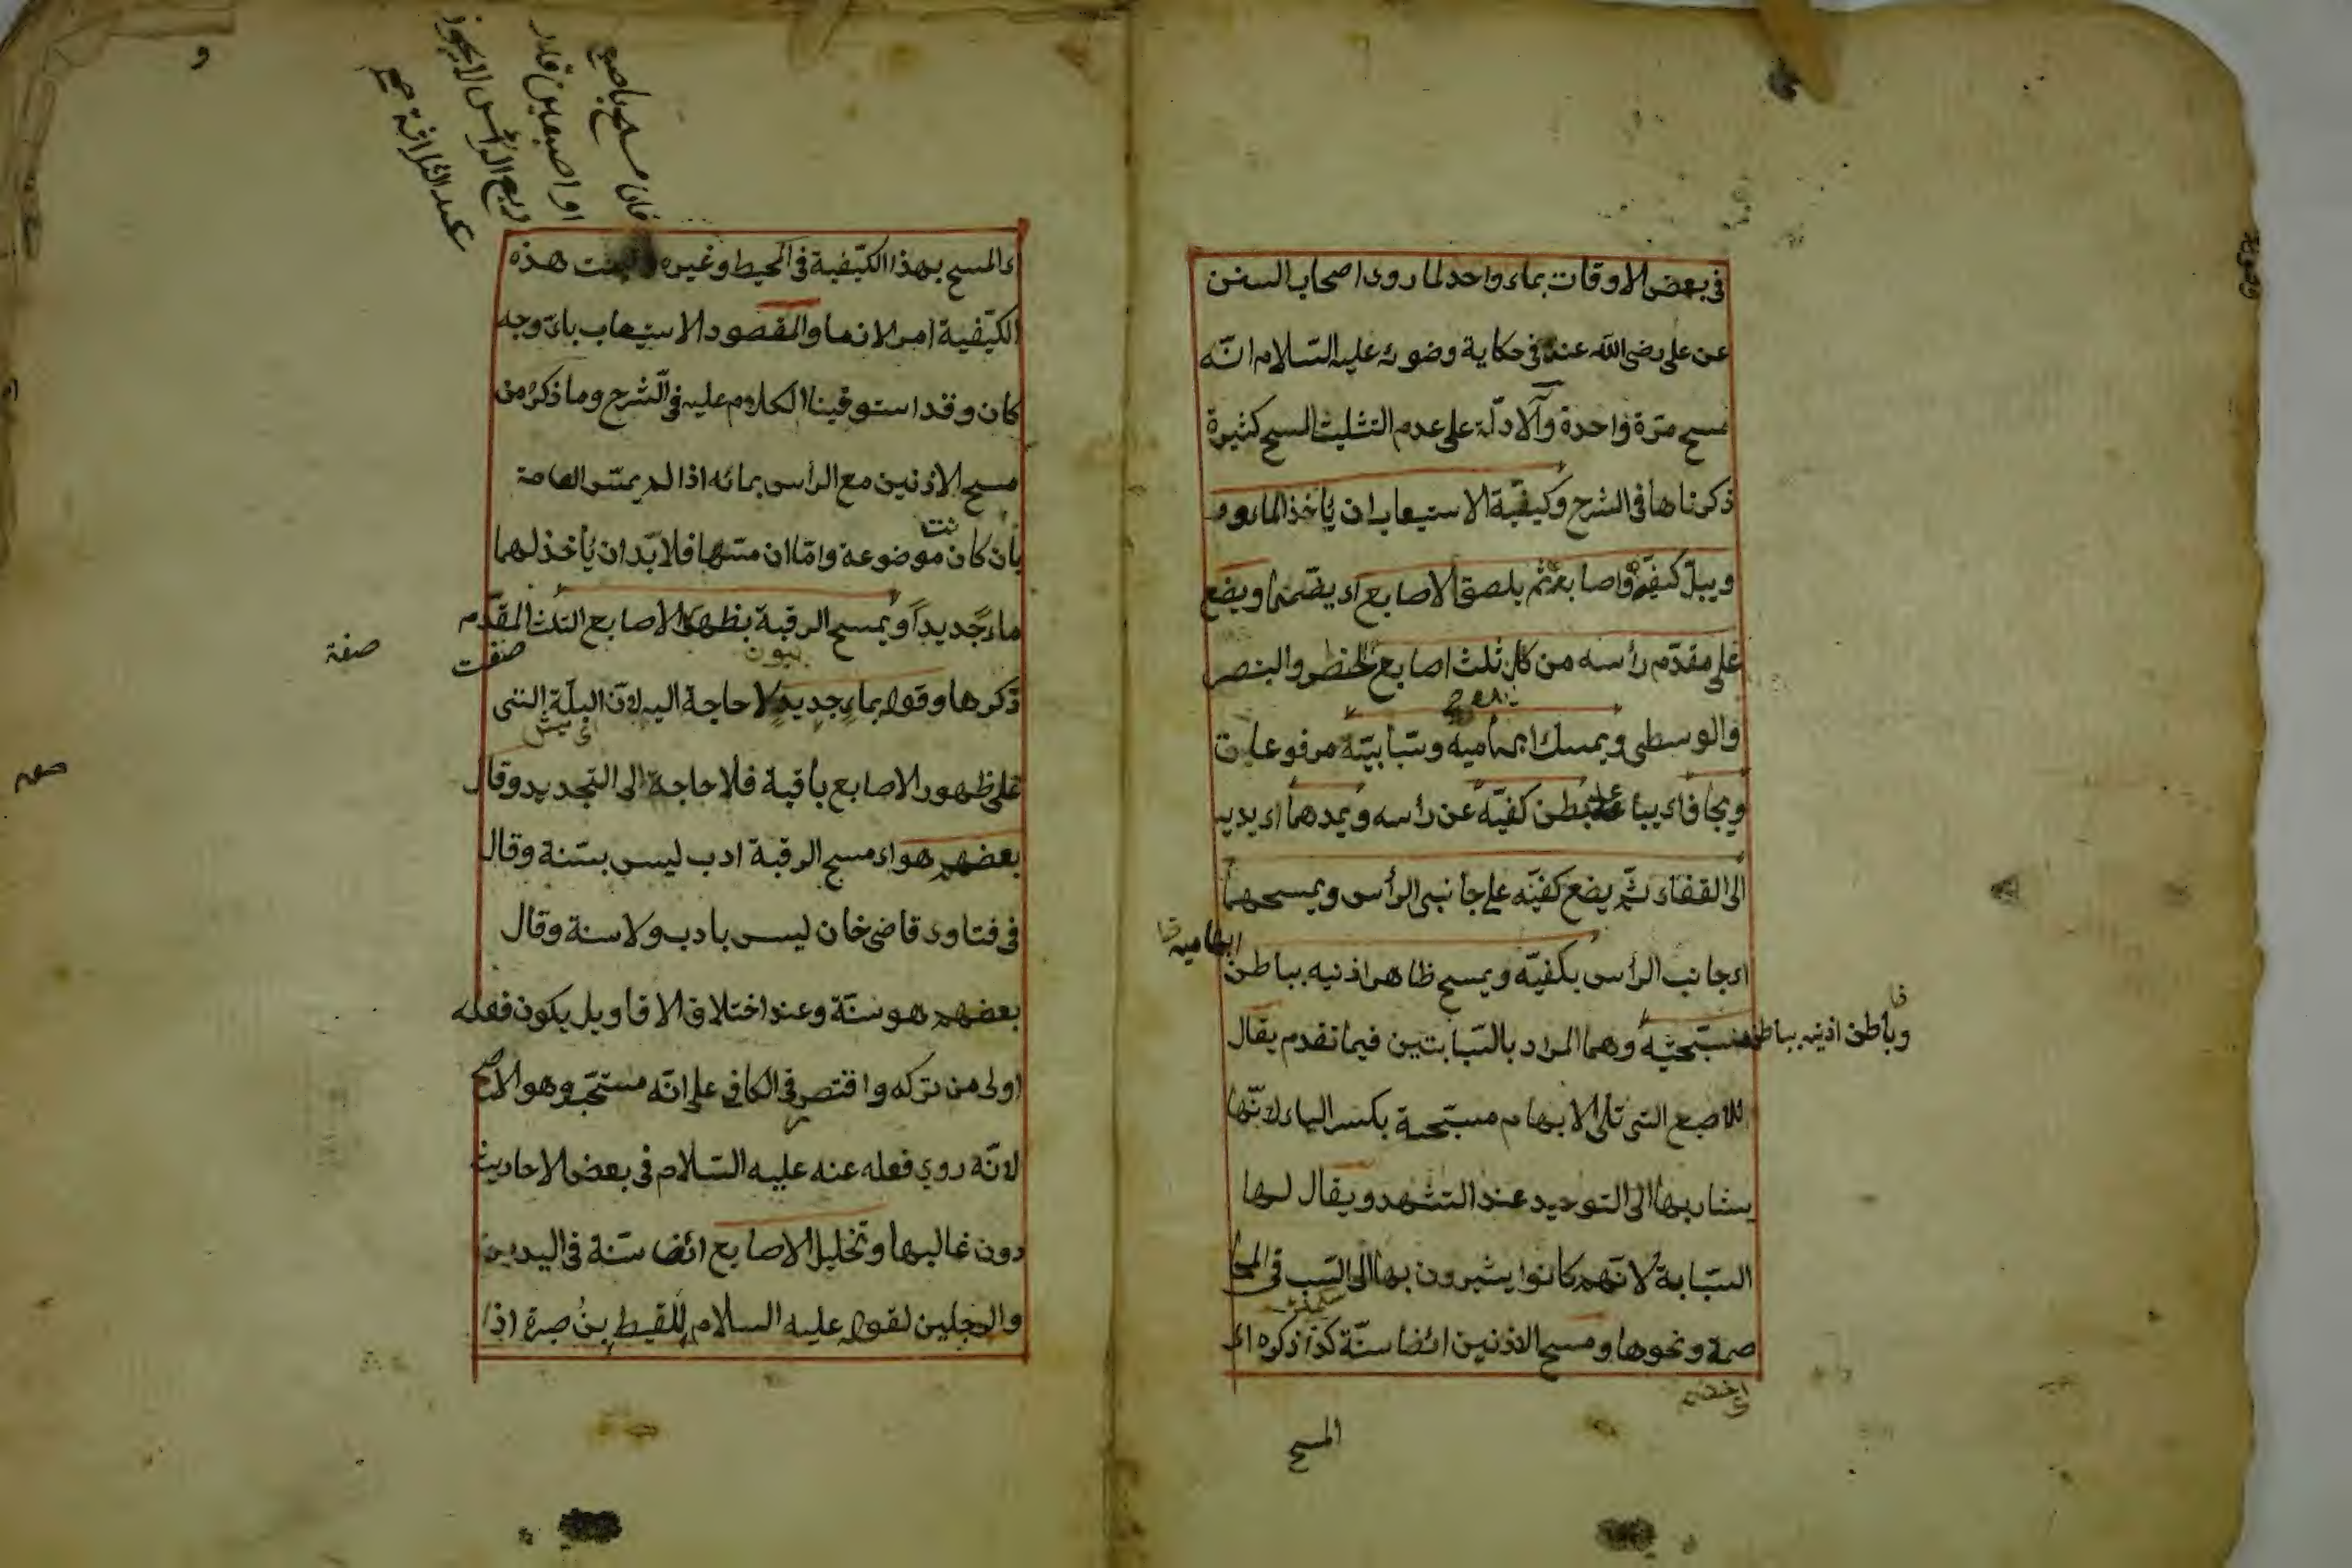 في بعض الاوقات بماء واحد لما روى اصحاب السنن
عن علي رضى الله عنه في حكاية وضوئه عليه السّلام انّه
مسح مرّة واحدة والادلّة على عدم التثليث المسح كثيرة
ذكرناها في الشرح وكيفيّة الاستيعاب ان يأخذ الماء
ويبلّ كفيّه واصابعه ثم يلصق الاصابع اى يضمها ويضع
على مقدّم رأسه من كل ثلث اصابع الخنصر والبنصر
والوسطى ويمسك ابهاميه وسبّابيته مرفوعات
ويجافى بطن كفيّه عن رأسه ويمدهما اى يديه
الى القفاء ثمّ يضع كفيّه على جانبى الرأس ويمسحهما
اى جانب الرأس بكفيّه ويمسح ظاهر اذنيه بباطن
ابهاميه
وباطن اذنيه بباطن
مسبّحيته وهما المراد بالسّبابتين فيما تقدم يقال
للاصبع التى تلى الابهام مسبّحة بكسر الباء لانّها
يشار بها الى التوحيد عند التشهد ويقال لها
السبّابة لانّهم كانوا يشيرون بها الى السّب في المخا
صمة ونحوها ومسح الاذنين ائضا سنّة كذا ذكره اى
المسح
ء المسح بهذا الكيّفية في المحيط وغيره هذه
الكيّفية امر لانما والمقصود الاستيعاب باىّ وجه
كان وقد استوفينا الكلام عليه في الشرح وما ذكر من
مسح الاذنين مع الرأس بمائه اذا لم يمسّ العمامة
بأن كان موضوعة وامّا ان مسّها فلا بّد ان يأخذ لهما
ماء جديداً ويمسح الرقبة بظهر الاصابع الثلث المقدّم
صفة
ذكرها وقوله بماء جديد لا حاجة اليه لانّ البلّة التى
على ظهور الاصابع باقية فلا حاجة الى التجديد وقال
بعضهم هو اى مسح الرقبة ادب ليس بسّنة وقال
في فتاوى قاضى خان ليس بادب ولا سنة وقال
بعضهم هو سنّة وعند اختلاف الاقاويل يكون فعله
اولى من تركه واقتصر في الكافي على انّه مستحّب وهو الاصح
لانّه روي فعله عنه عليه السّلام في بعض الاحاديث
دون غالبها وتخليل الاصابع ائضا سنّة في اليدين
والرجلين لقوله عليه السلام للقيط بن صبرة اذا
فان مسح باصبع
او اصبعين قدر
ربع الرأس لا يجوز
عند الثلاثة